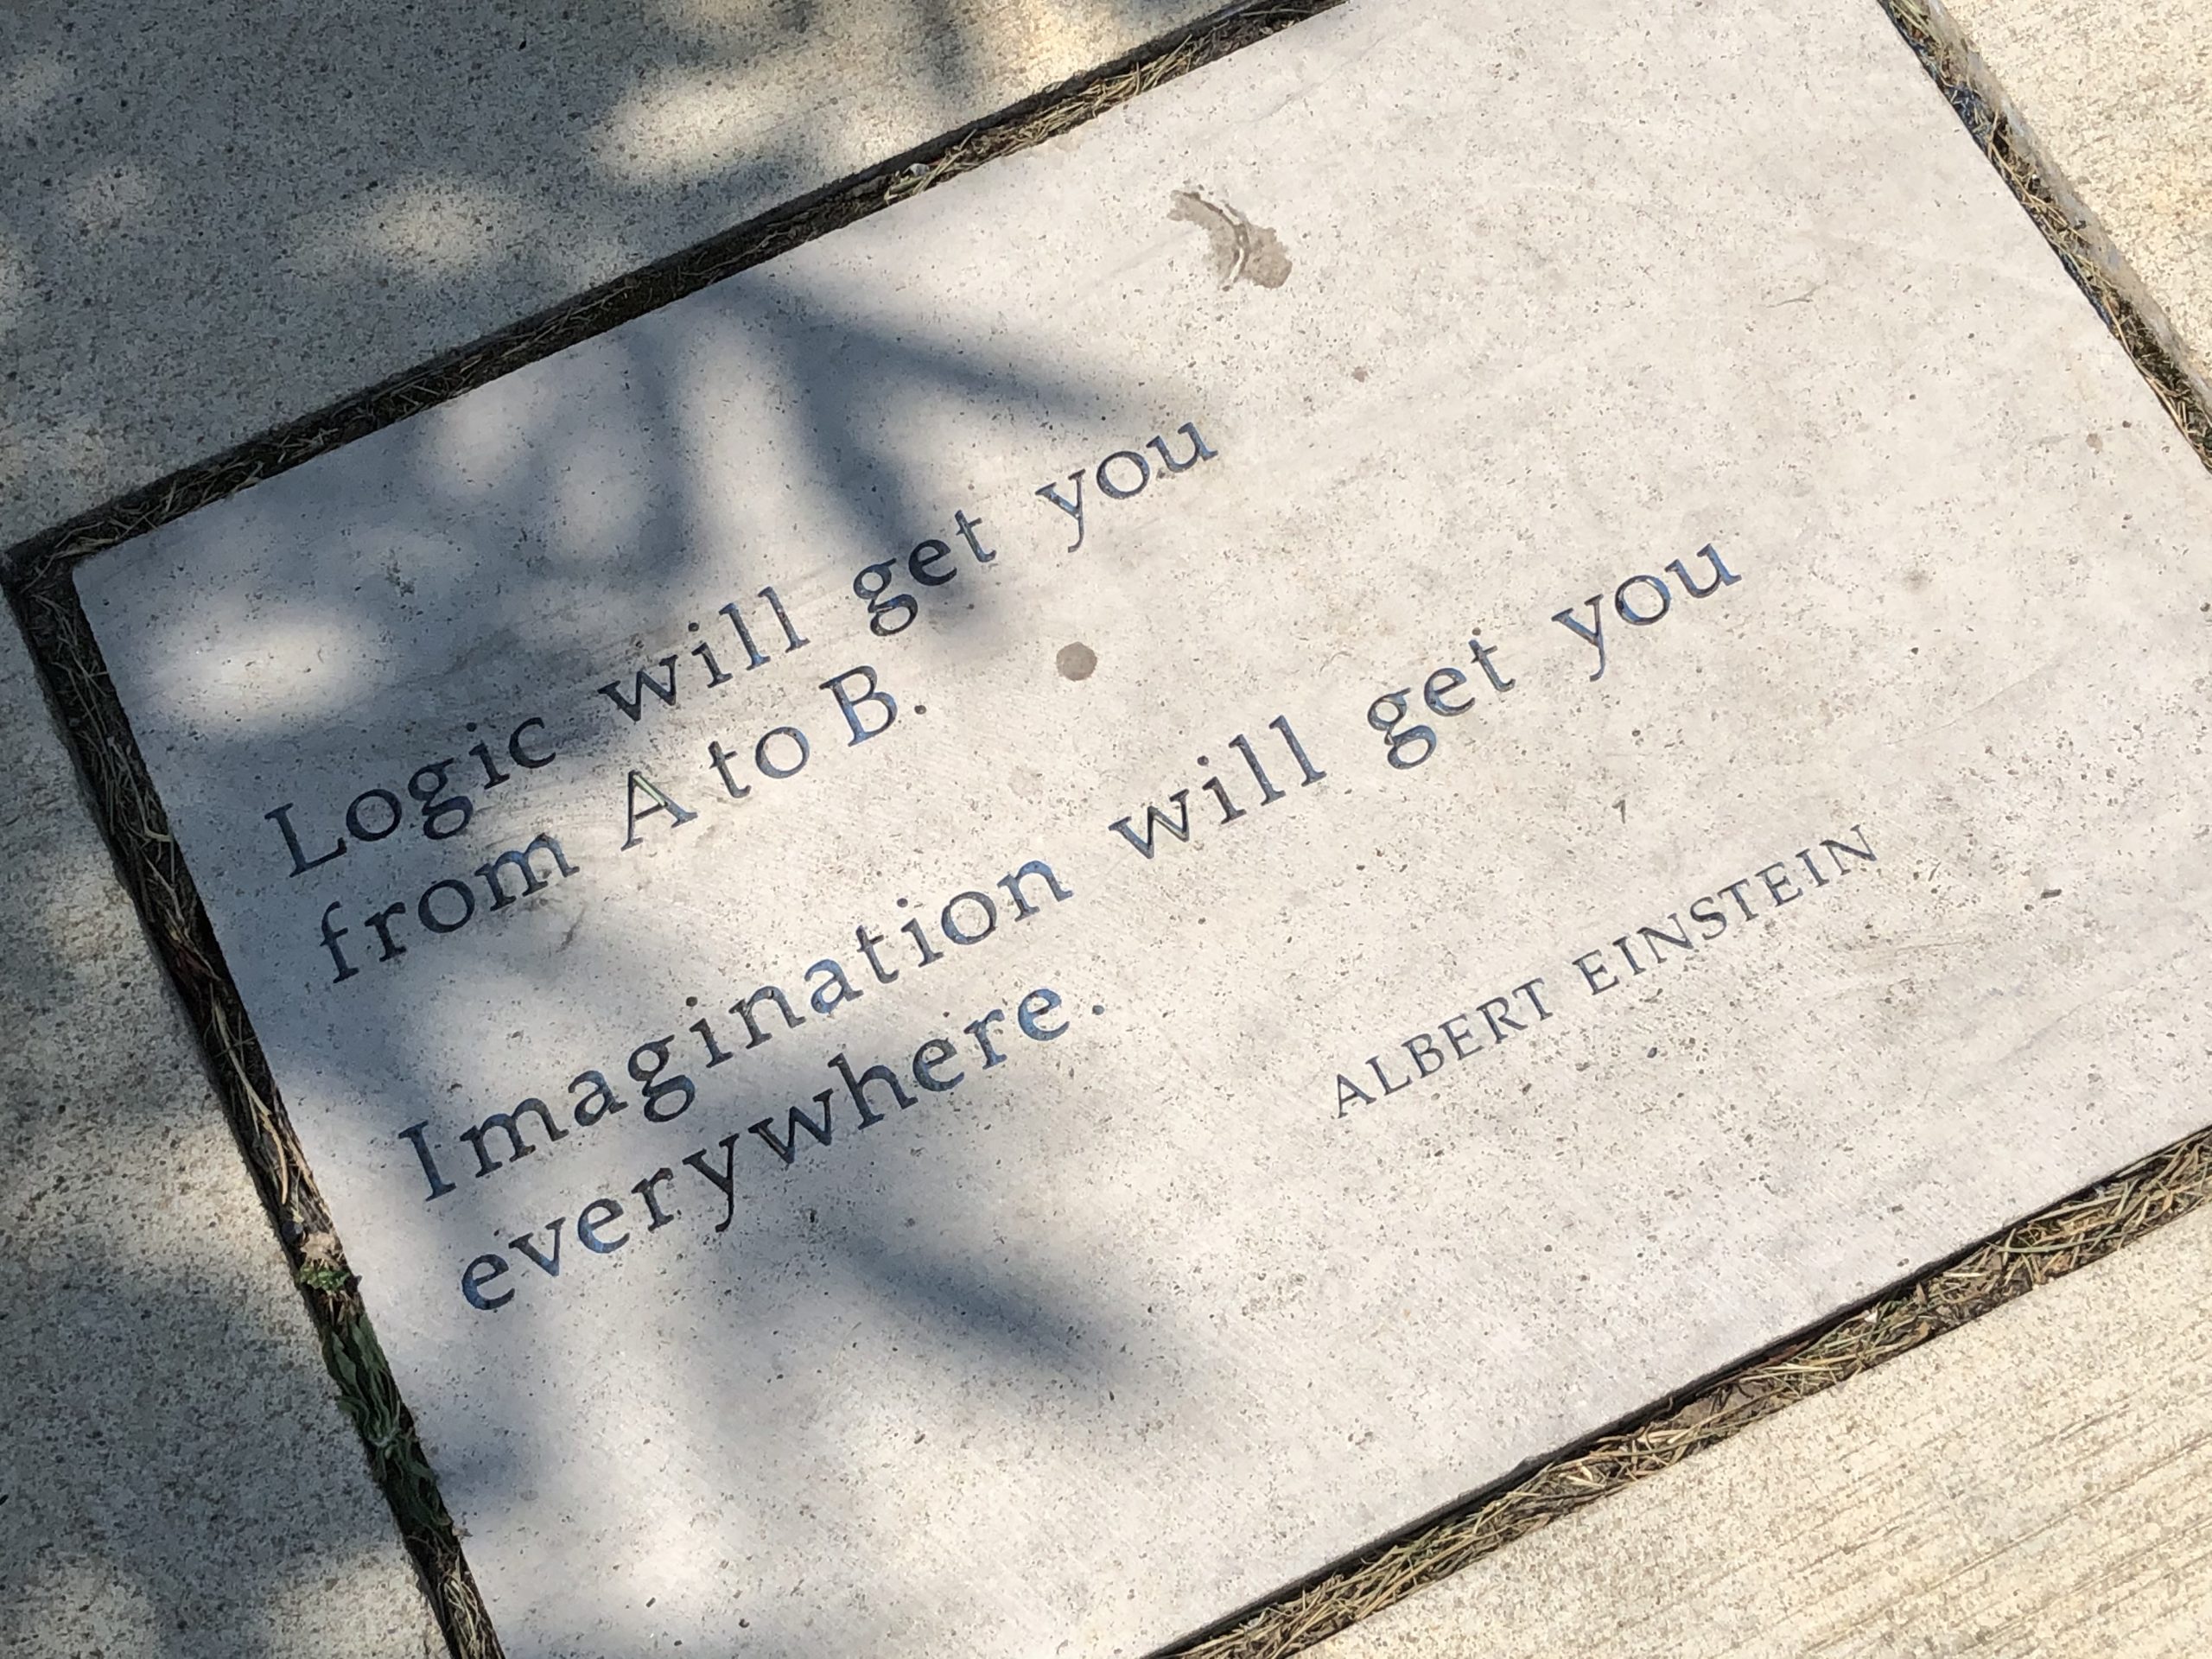 Logic will get you
from A to B.
Imagination will get you
everywhere.
ALBERT EINSTEIN